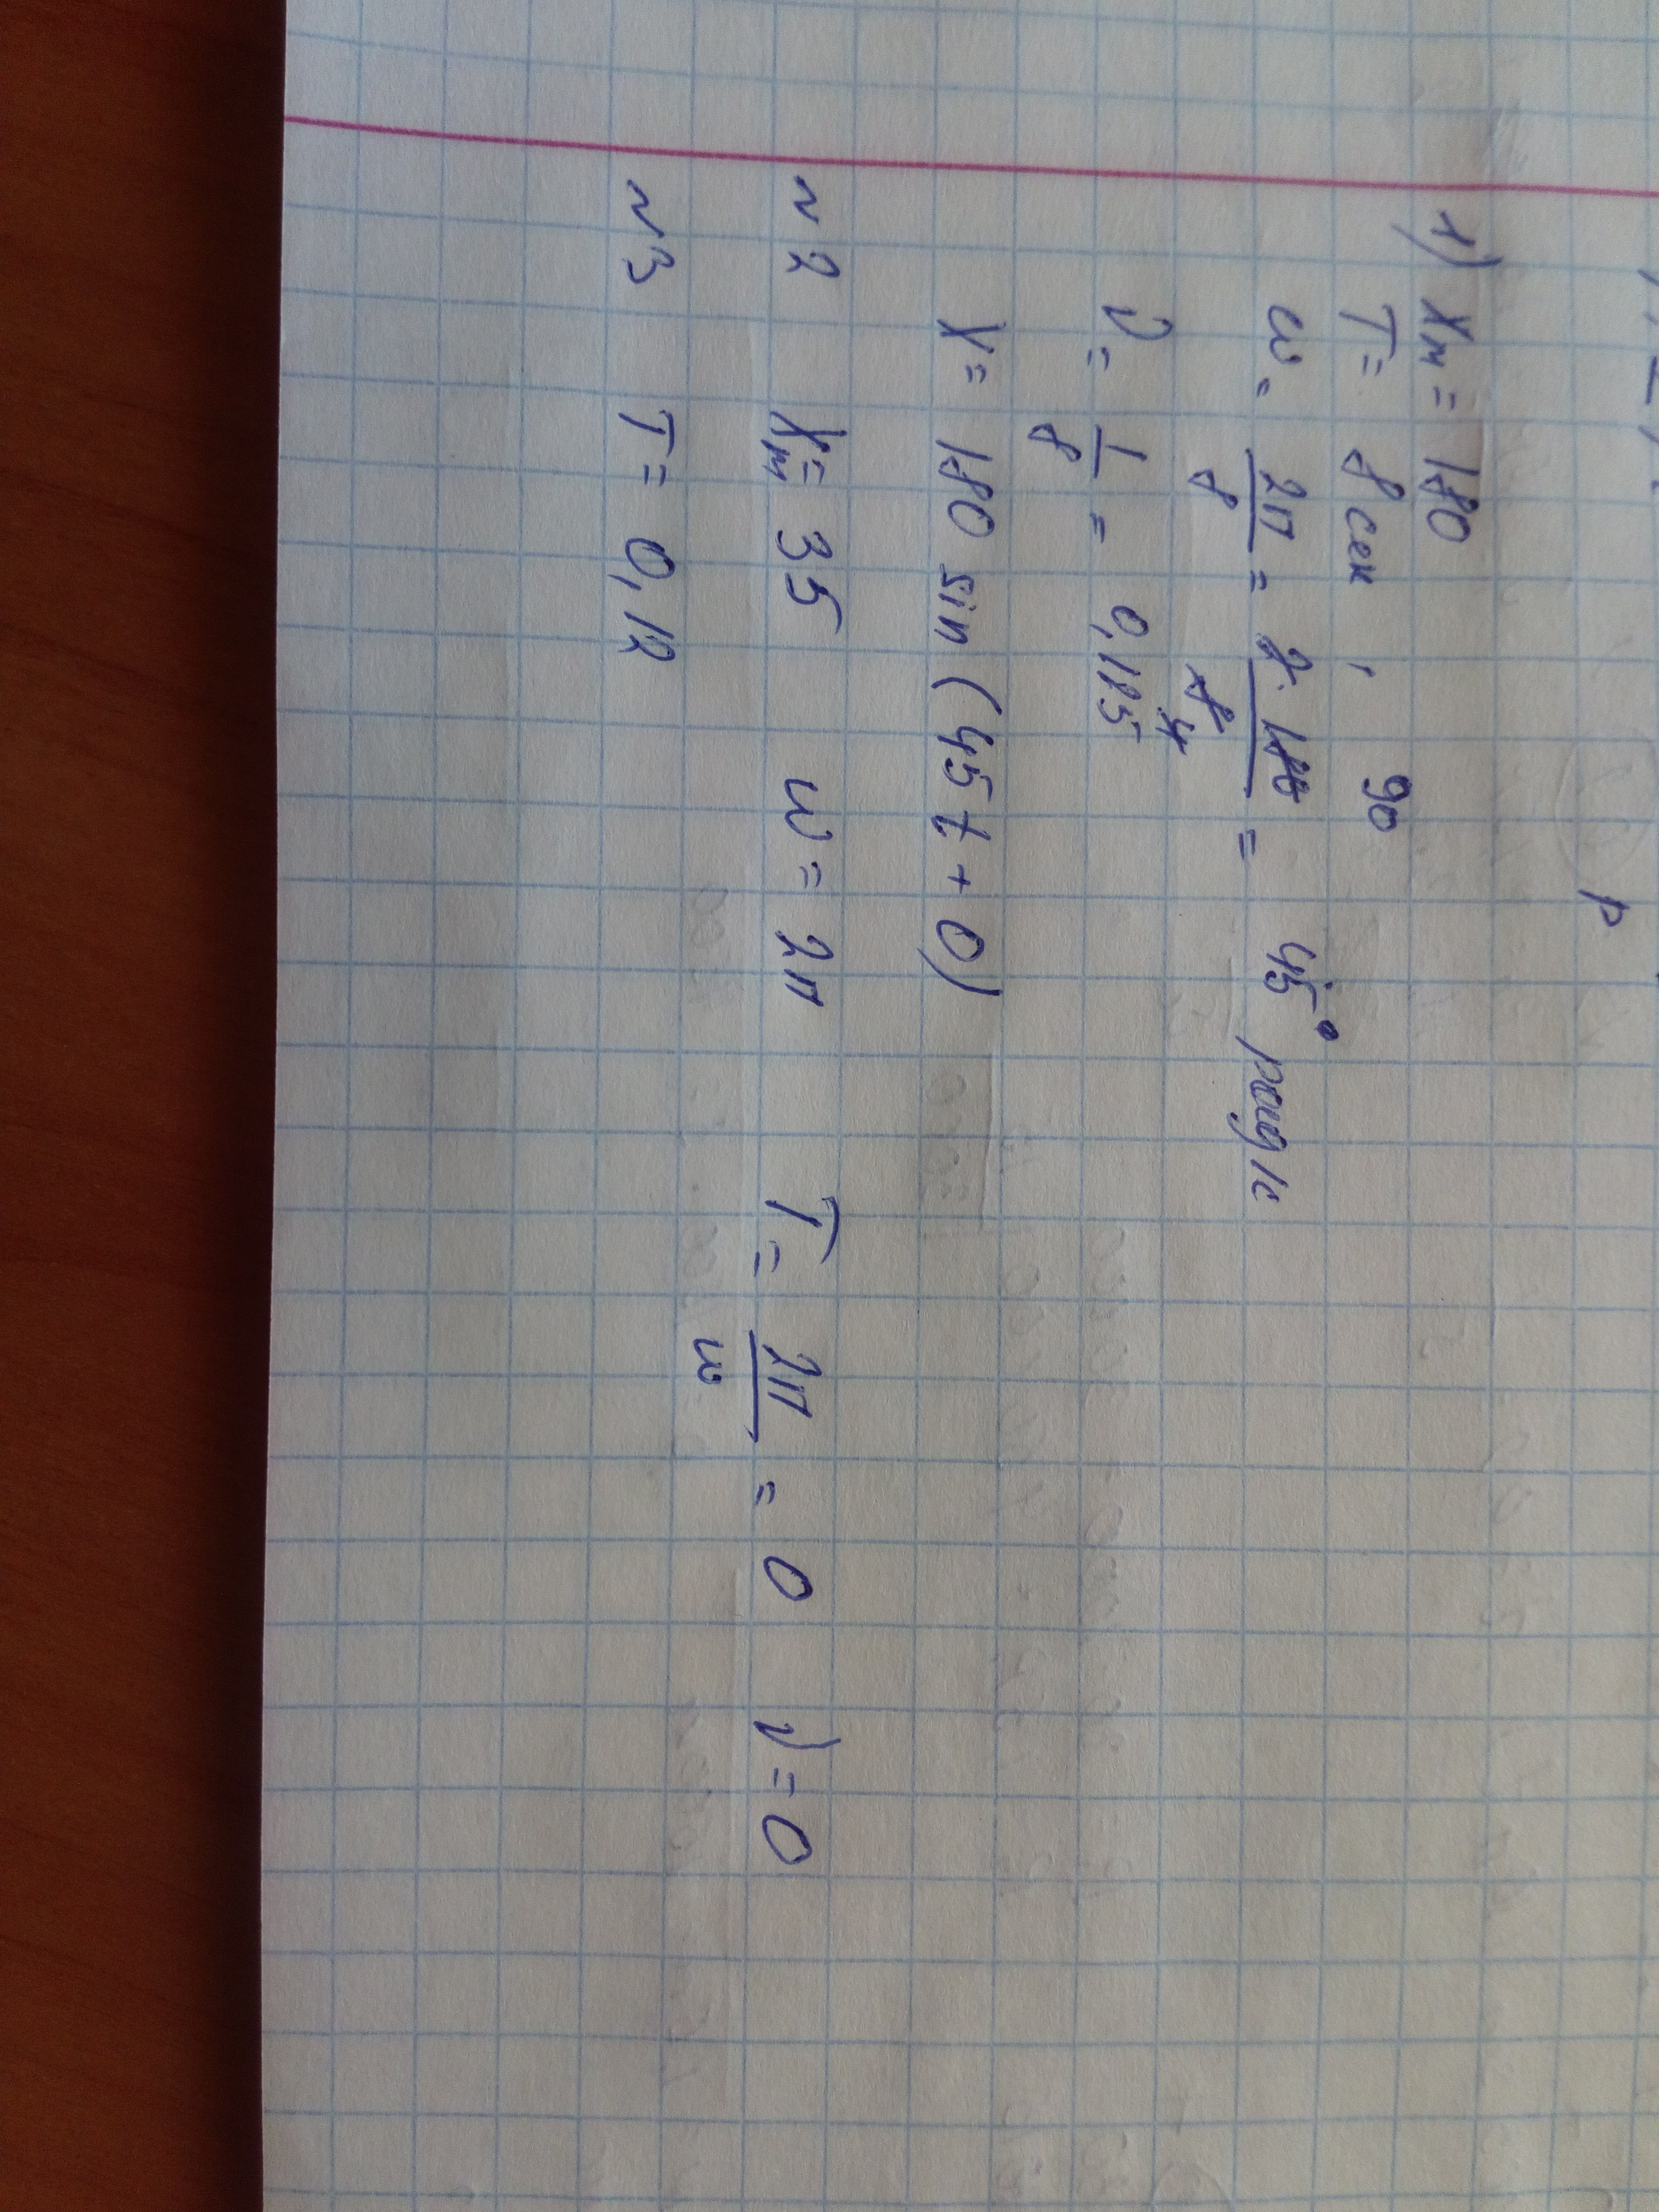 р
1) Xm = 180
T = 8 сек ,
ω = 2π/8 = 2·180/8 = 45° рад/с
90
4
ν = 1/8 = 0,125
X = 180 sin (45t + 0)
N2 Xm = 35 ω = 2π T = 2π/ω = 0 ν = 0
N3 T = 0,12